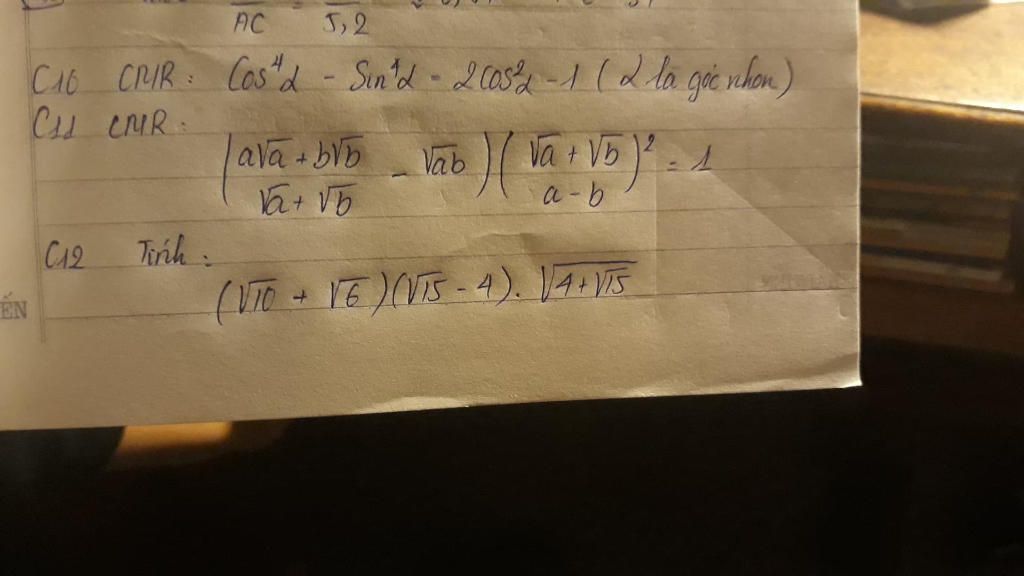 AC 5,2
C10 CMR: Cos⁴α - Sin⁴α = 2cos²α - 1 (α là góc nhọn)
C11 CMR:
(a√a + b√b / √a + √b - √ab)(√a + √b / a - b)² = 1
C12 Tính:
(√10 + √6)(√15 - 4). √(4+√15)
ẾN